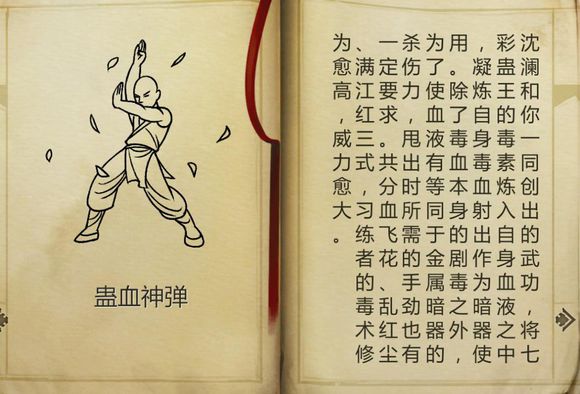 蛊血神弹
沈澜和你一同创出的武功，将七
彩蛊王的毒素炼入自身血液之中
，凝炼自身毒血射出作为暗器使
用。除了毒血本身的剧毒之外，
为了使血液有等同于金属暗器的
杀伤力，甩出时所需的手劲也有
一定要求。共分血飞花、乱红尘
、满江红三式，习练者的毒术修
为愈高，威力愈大。